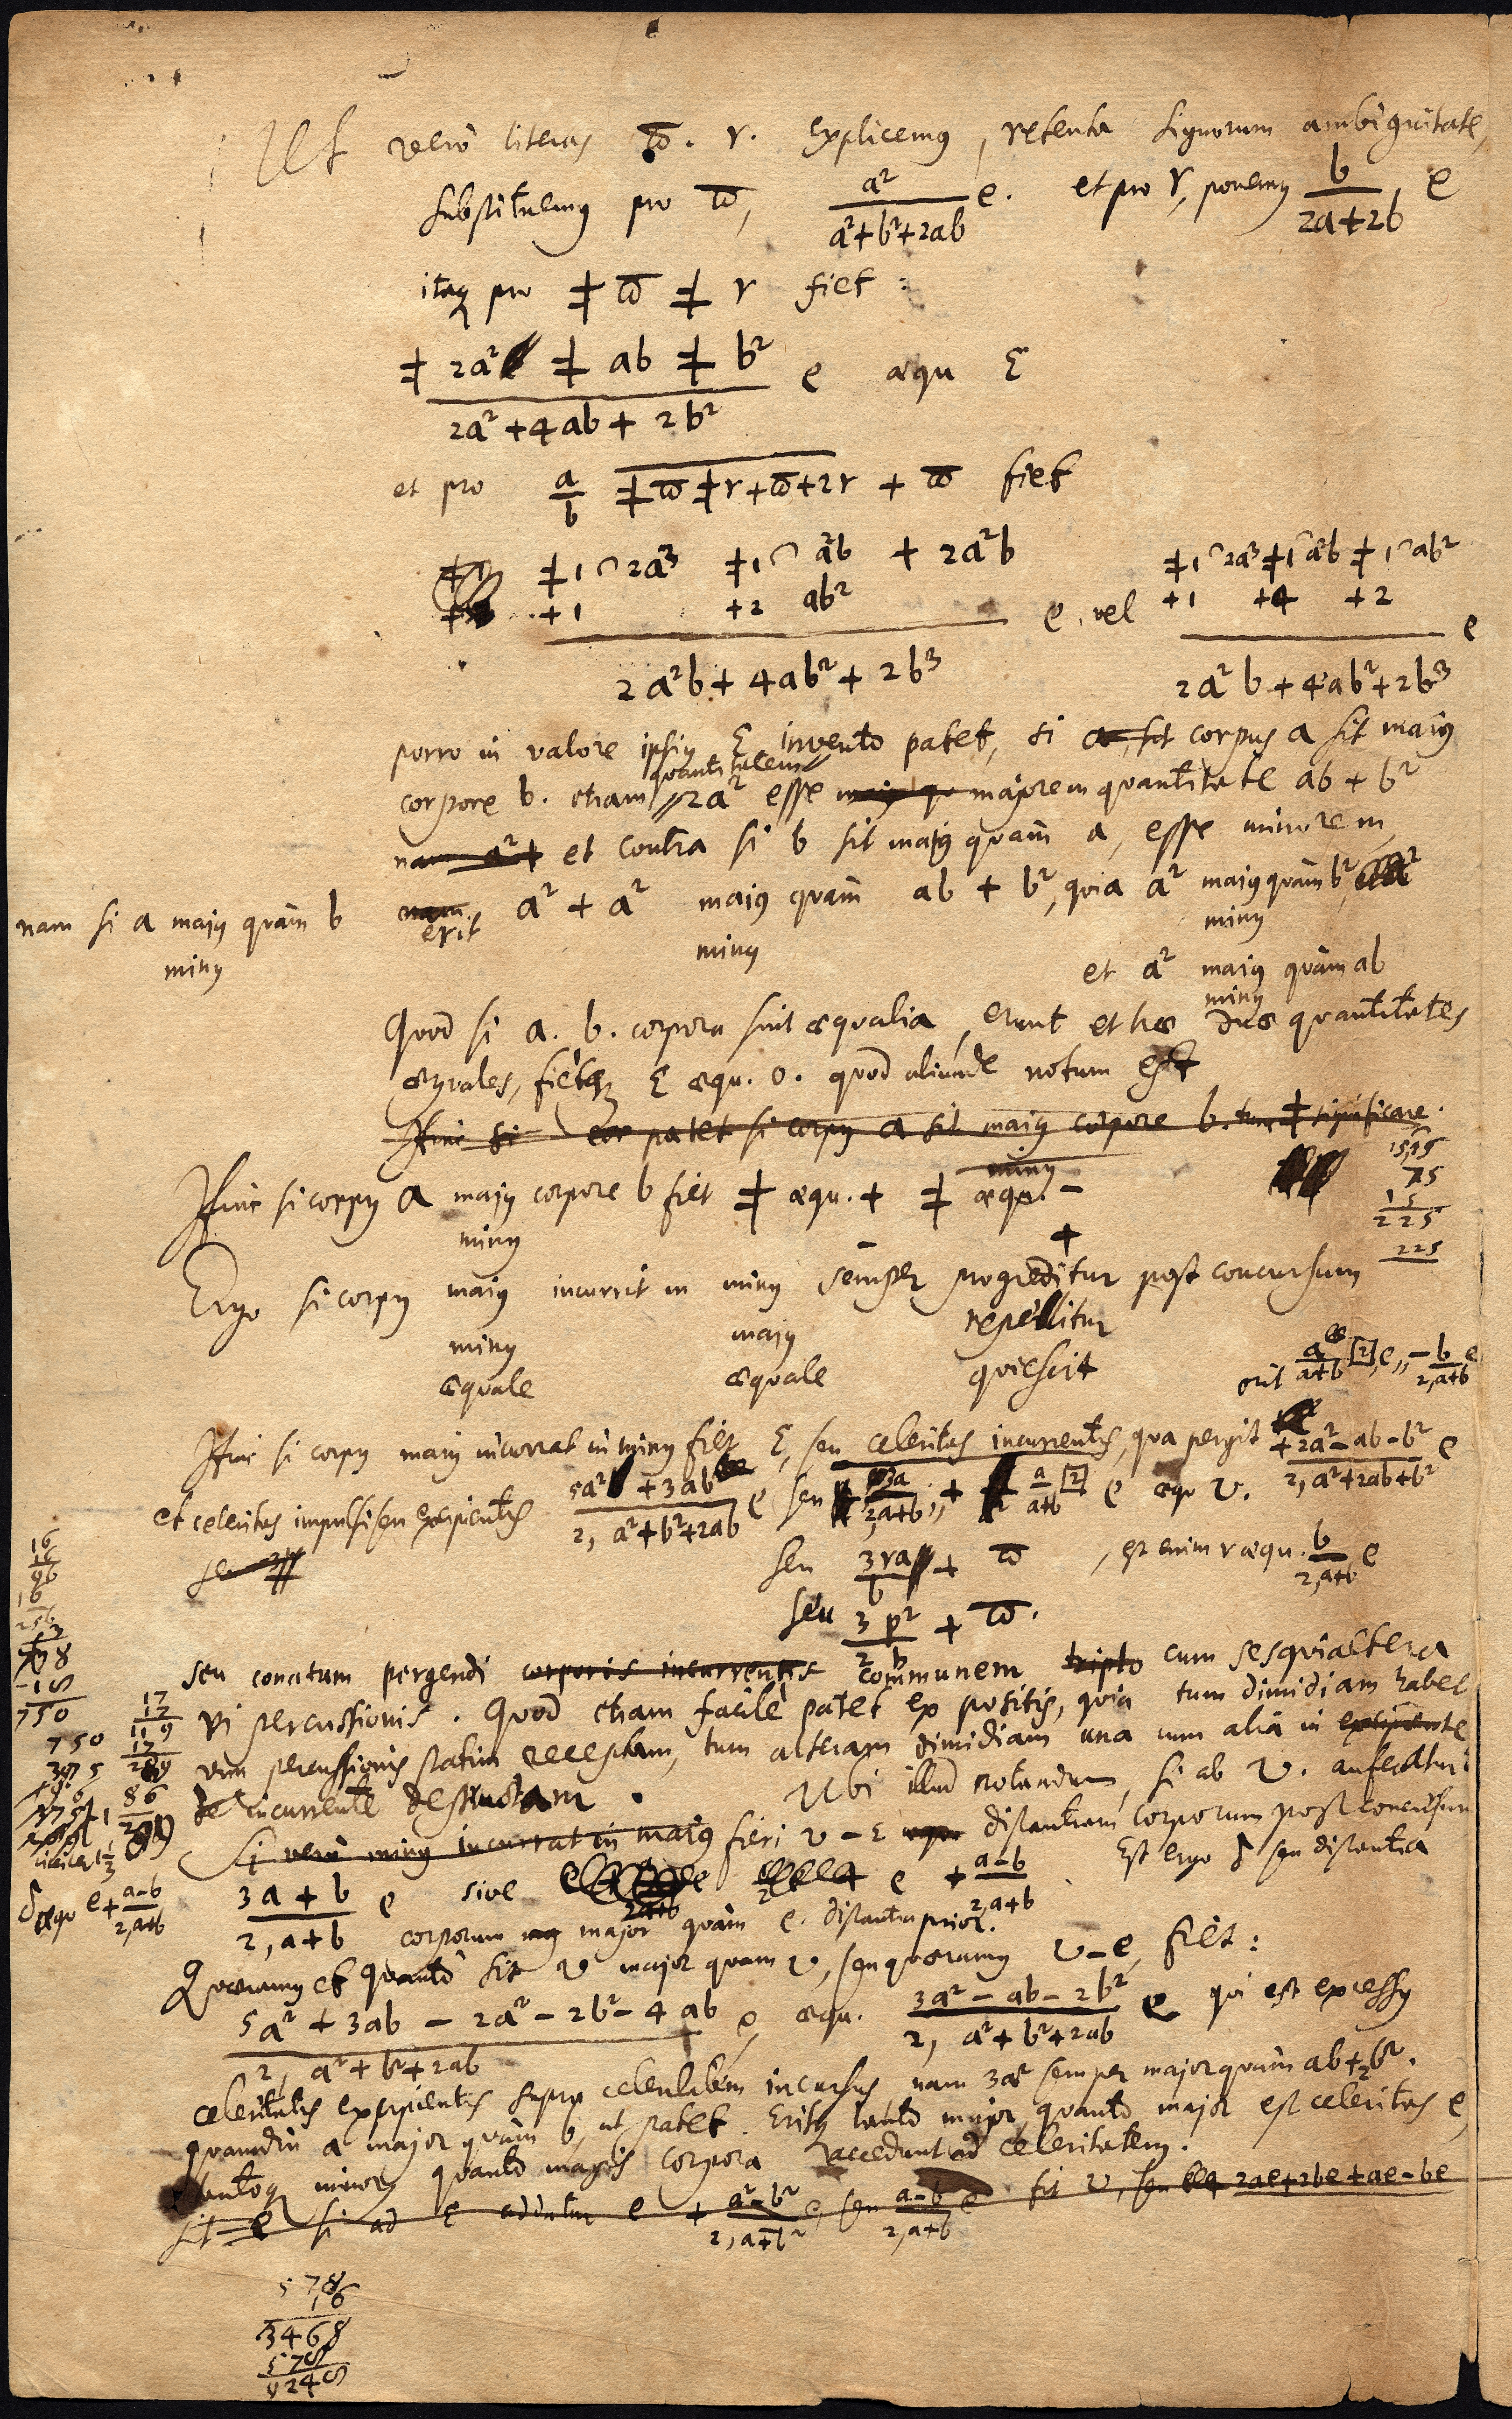 Ut vero literas ω̄. r. explicemus, retenta signorum ambiguitate,
substituemus pro ω̄, a²/(a²+b²+2ab) e. et pro r, ponemus b/(2a+2b), e
itaq pro ⧧ ω̄ ⧧ r fiet:
(⧧ 2a² ⧧ ab ⧧ b²)/(2a²+4ab+2b²) e æqu Σ
et pro a/b ⧧ω̄⧧r+ω̄+2r + ω̄ fiet
⧧1⌒2a³ ⧧1⌒a²b + 2a²b
+1 +2 ab²
2a²b+4ab²+2b³ e, vel
⧧1⌒2a³⧧1⌒a²b⧧1⌒ab²
+1 +4 +2
2a²b+4ab²+2b³ e
porro in valore ipsius Σ invento patet, si a sit corpus a sit majus
quantitatem
corpore b. etiam 2a² esse majorem quantitate ab + b²
nam a² + et contra si b sit majus quam a, esse minorem
nam si a majus quàm b
minus
nam erit a² + a² majus quàm ab + b², quia a² majus quàm b²,
minus
minus
et a² majus quàm ab
minus
Quod si a. b. corpora sint æqualia, erunt et hæ duæ quantitates
æquales, fietq Σ æqu. 0. quod aliunde notum est
Hinc si cor patet si corpus a sit majus corpore b. tum ⧧ significare.
minus
Hinc si corpus a majus corpore b fiet ⧧ æqu. + ⧧ æqu. -
minus
- +
15
75
15
225
225
Ergo si corpus majus incurrit in minus semper progreditur post concursum
minus majus repellitur
æquale æquale quiescit
erit a/(a+b) [2], e,, -b/(2,a+b) e
Hinc si corpus majus incurrat in minus fiet Σ, seu celeritas incurrentis, qua pergit (+2a²-ab-b²)/(2, a²+2ab+b²) e
et celeritas impulsi seu excipientis (5a²+3ab)/(2, a²+b²+2ab) e seu 3a/(2,a+b),, + a/(a+b) [2] e æqu v.
seu
seu 3ra/b + ω̄, est enim r æqu. b/(2,a+b) e
seu 3/2 p²/b + ω̄.
seu conatum pergendi corporis incurrentis communem triplo cum sesquialtera
vi percussionis. Quod etiam facilè patet ex positis, quia tum dimidiam habet
vim percussionis statim receptam, tum alteram dimidiam una cum aliâ in excipiente
de incurrente destructam. Ubi illud notandum, si ab v. auferatur
Si verò minus incurrat in majus fieri v - Σ distantiam corporum post concursum
(3a + b)/(2, a+b) e sive e + (a-b)/(2,a+b) Est ergo δ seu distantia
δ æqu e+ (a-b)/(2,a+b)
corporum major quàm e. distantia prior.
Quæramus et quantò sit v major quam v, seu quæramus v-e, fiet:
(5a² + 3ab - 2a² - 2b² - 4ab)/(2, a²+b²+2ab) e, æqu. (3a² - ab - 2b²)/(2, a²+b²+2ab) e qui est excessus
celeritatis excipientis supra celeritatem incursus nam 3a² semper major quàm ab+2b².
quamdiu a major quàm b, ut patet. Eritq tantò major, quantò major est celeritas e,
tantoq minor, quantò magis corpora accedunt ad celeritatem.
sit e si ad Σ addatur e + (a²-b²)/(2,a+b²) e, seu (a-b)/(2,a+b) e fit v, seu 2ae+2be+ae-be
16
16
96
16
256
3
768
-18
750
750
375
17
17
119
17
289
578
16
3468
578
9248